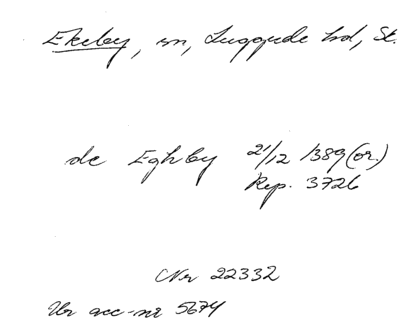 Ekeby, sn, Luggude hd, Sk.
de Eghby 21/12 1389 (or.)
Rep. 3726
Nr 22332
Ur acc-nr 5674